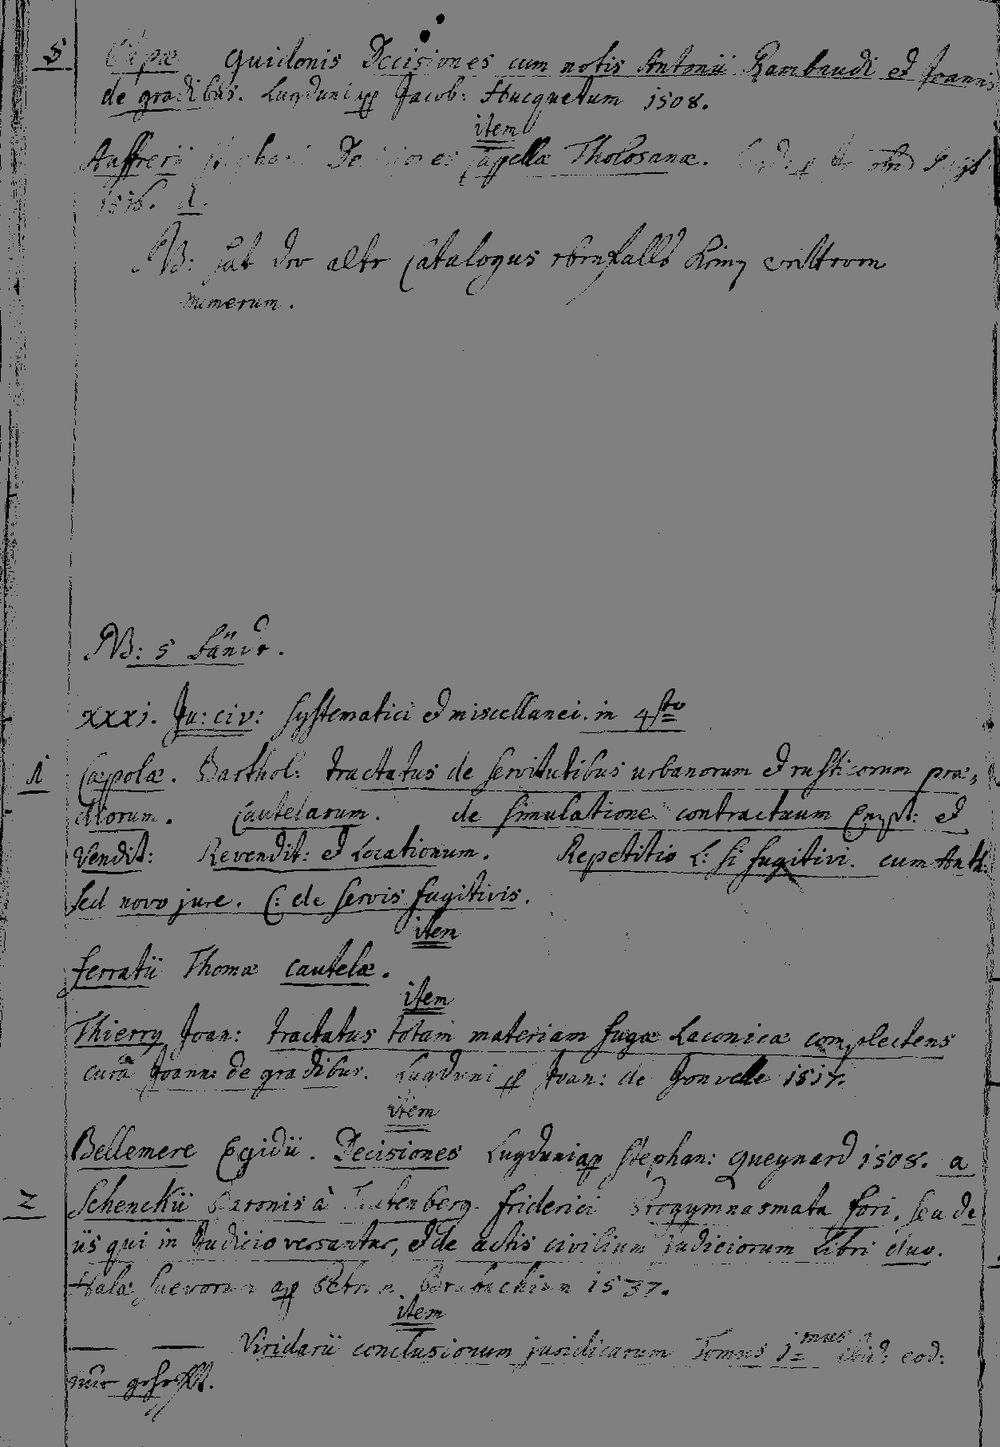 5 Papæ Guidonis Decisiones cum notis Antonii Rambaudi ed Joannis
de gradibus. Lugduni ap Jacob: Hucquetum 1508.
item
Aufrerii Stephani Decisiones Capellæ Tholosanæ.
1516. d.
NB: hat der alte Catalogus ebenfalls keinen weitteren
numerum.
NB: 5 Bände.
XXXI. Ju: civ: Systematici et miscellanei in 4sto
1 Cæpolæ. Barthol: tractatus de servitutibus urbanorum et rusticorum præ-
diorum. Cautelarum. de simulatione contractuum Empt: et
Vendit: Revendit: et Locationum. Repetitio L: si fugitivi. cum Auth:
sed novo jure. C: de servis fugitivis.
item
Ferratii Thomæ cautelæ.
item
Thierry Joan: tractatus totam materiam fugæ Laconicæ complectens
curâ Joann: de gradibus. Lugduni p Joan: de Jonvelle 1517.
item
Bellemere Egidii. Decisiones Lugduni ap Stephan: Gueynard 1508. a
2 Schenckii Baronis à Tautenberg Friderici Progymnasmata fori, seu de
iis qui in Judicio versantur, et de actis civilium Judiciorum Libri duo.
Halæ Suevorum ap Petrum Brubachium 1537.
item
— — Viridarii conclusionum juridicarum Tomus 1mus ibid: eod:
nur geheft.